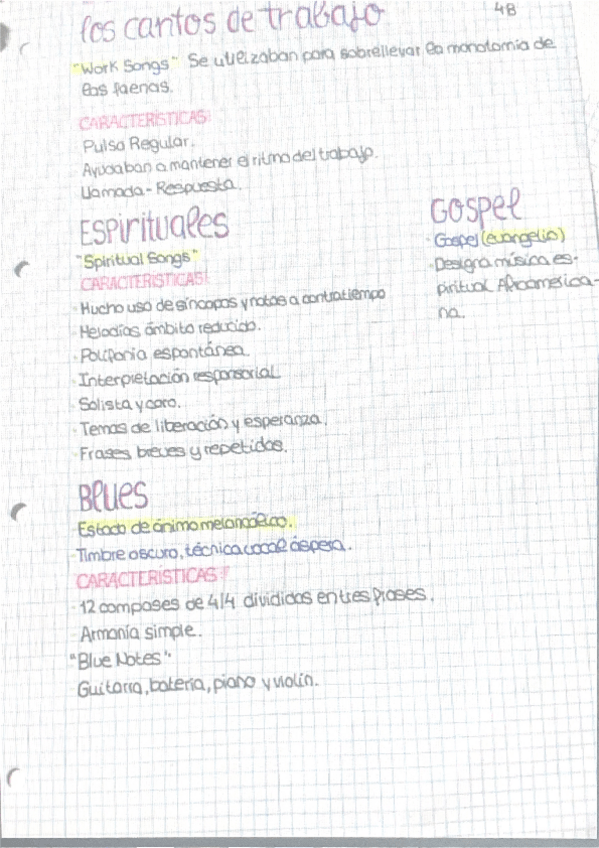 los cantos de trabajo
48
"Work Songs" Se utilizaban para sobrellevar la monotomia de
las faenas.
CARACTERÍSTICAS:
Pulso Regular.
Ayudaban a mantener el ritmo del trabajo.
Llamada - Respuesta.
ESPIRITUALES
"Spiritual Songs"
CARACTERÍSTICAS:
· Mucho uso de síncopas y notas a contratiempo
· Melodías ámbito reducido.
· Polifonía espontánea.
· Interpretación responsorial
· Solista y coro.
· Temas de liberación y esperanza.
· Frases breves y repetidas.
GOSPEL
· Gospel (evangelio)
· Designa música es-
piritual Afroamerica-
na.
BLUES
Estado de ánimo melancólico.
· Timbre oscuro, técnica vocal áspera.
CARACTERÍSTICAS:
· 12 compases de 4/4 divididos en tres frases.
· Armonía simple.
"Blue Notes"
· Guitarra, batería, piano y violín.